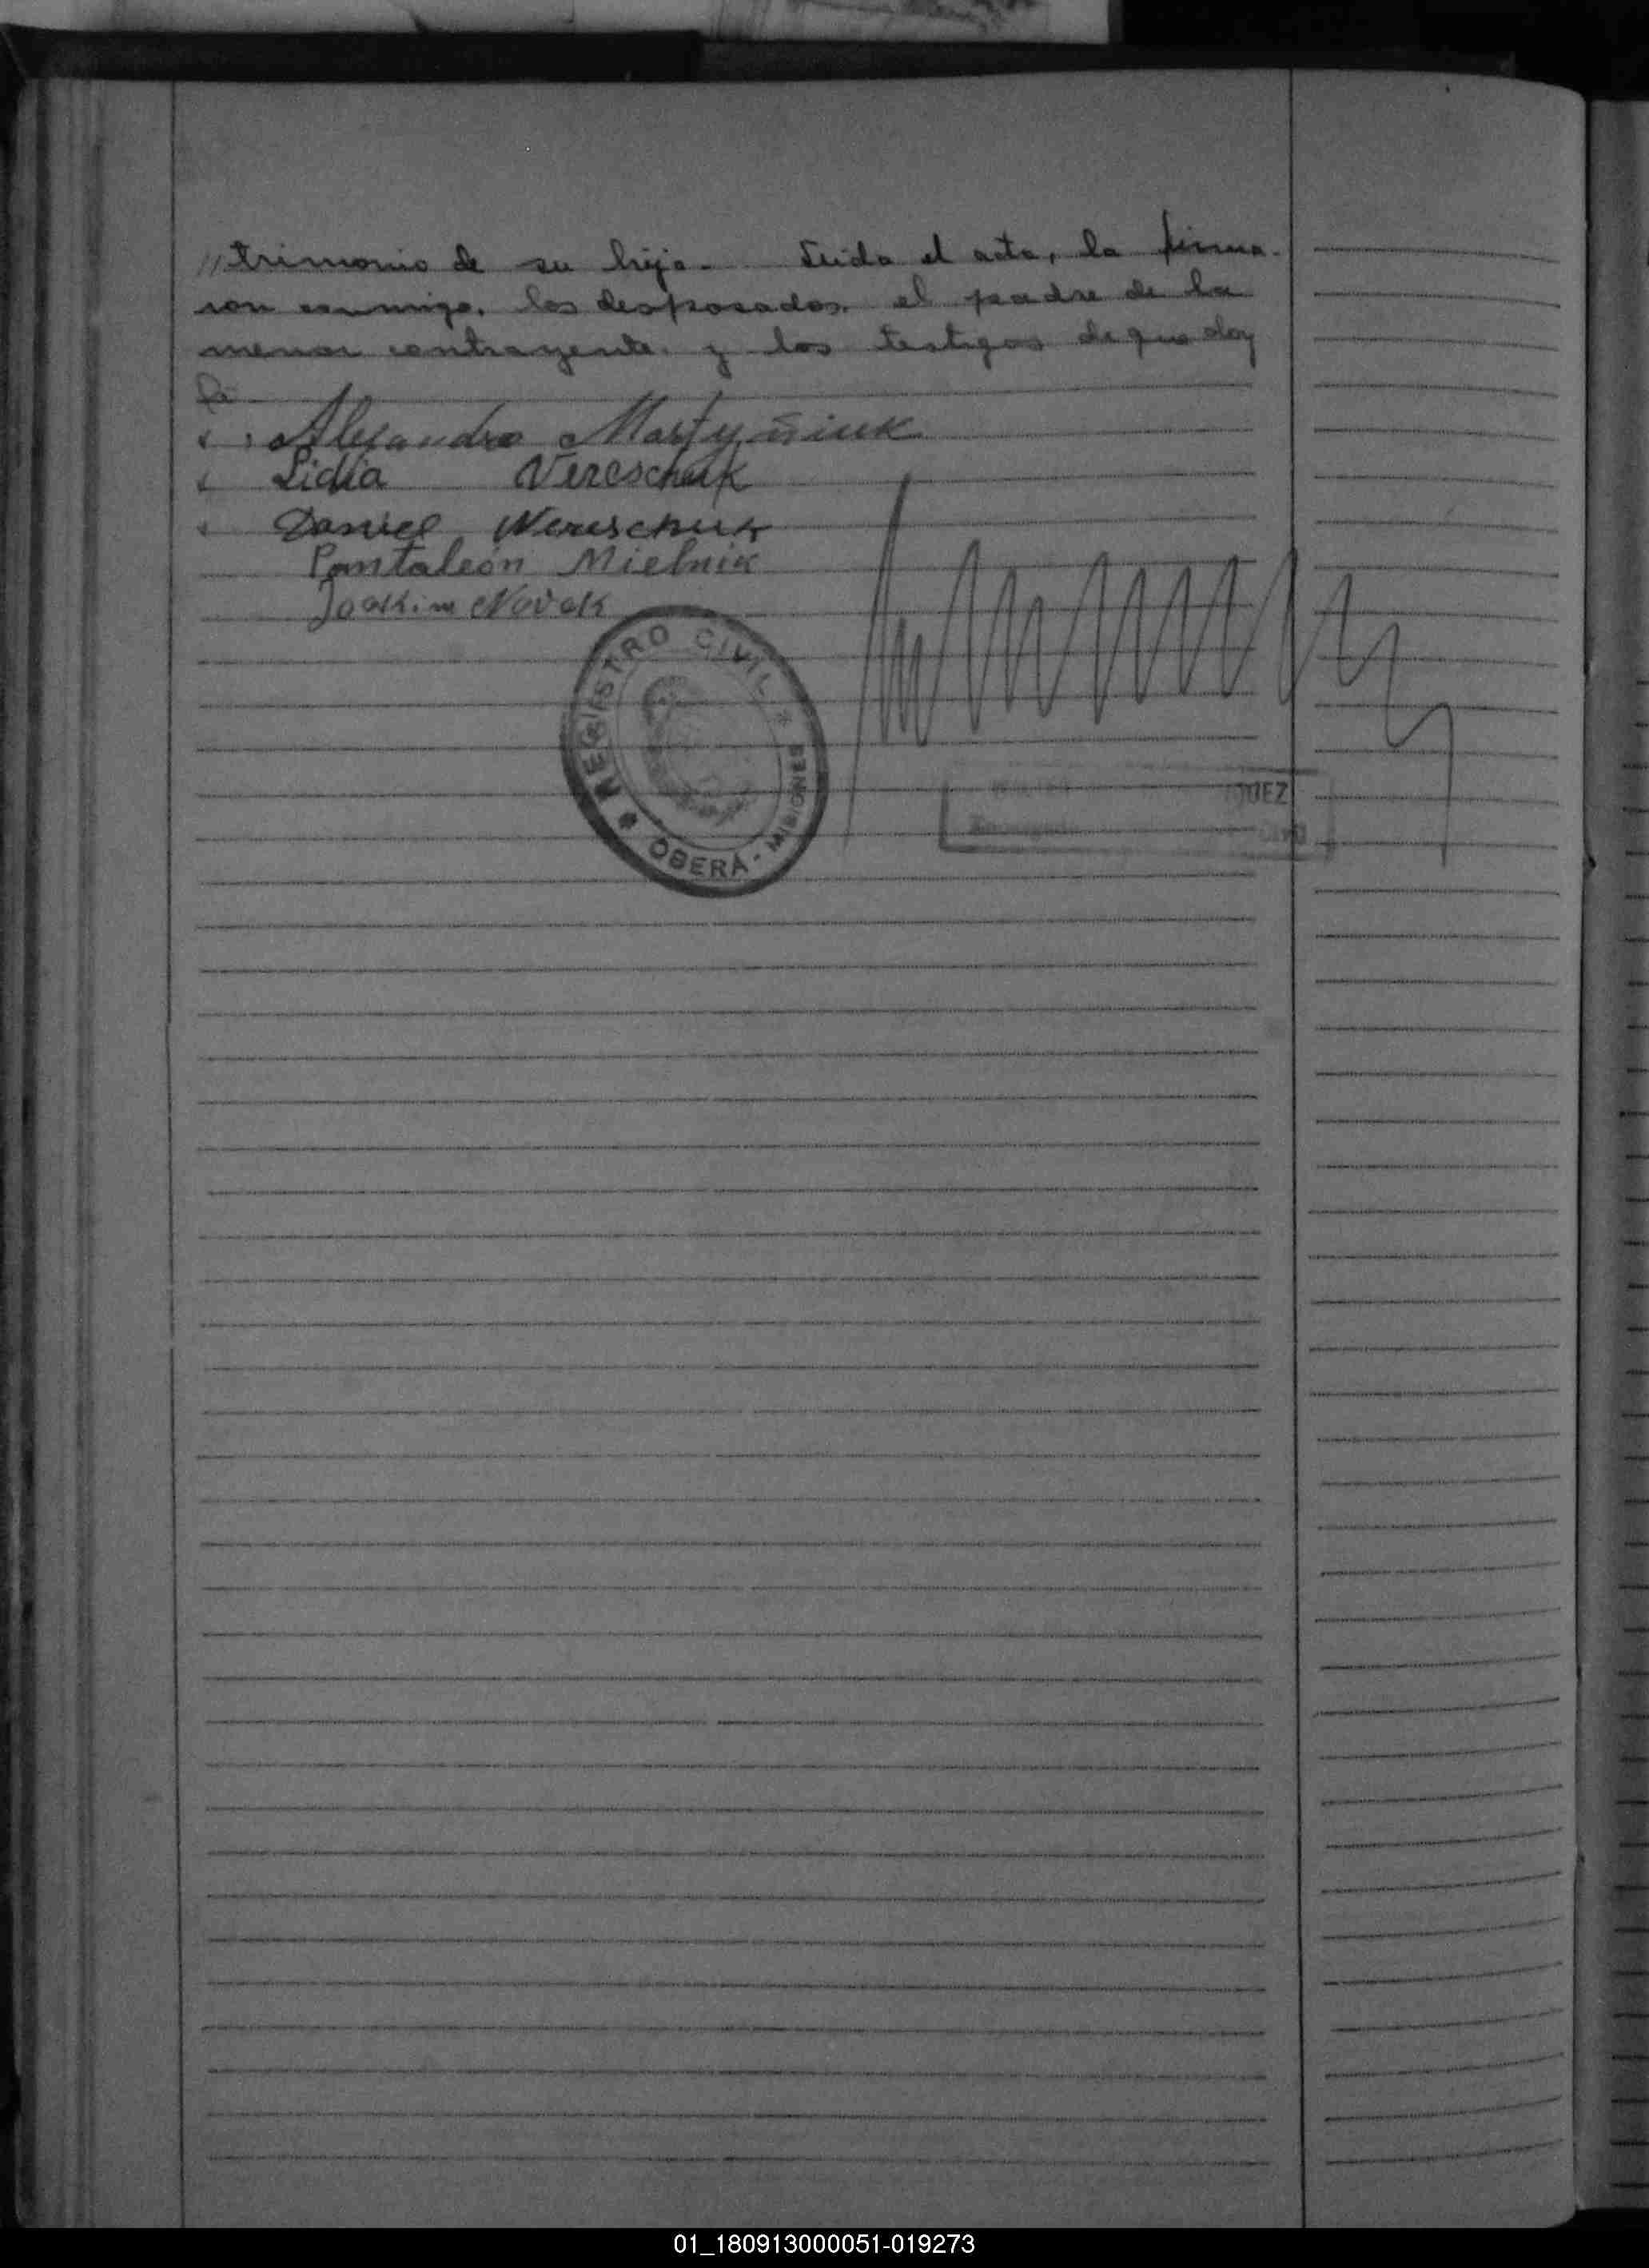 // trimonio de su hija. Leida el acta, la firma-
ron conmigo, los desposados, el padre de la
menor contrayente, y los testigos de que doy
fe
Alejandro Martyñiuk
Lidia Vereschuk
Daniel Wereschuk
Pantaleón Mielnik
Joakim Novak
* REGISTRO CIVIL *
OBERÁ - MISIONES
JUEZ
Civil
01_180913000051-019273